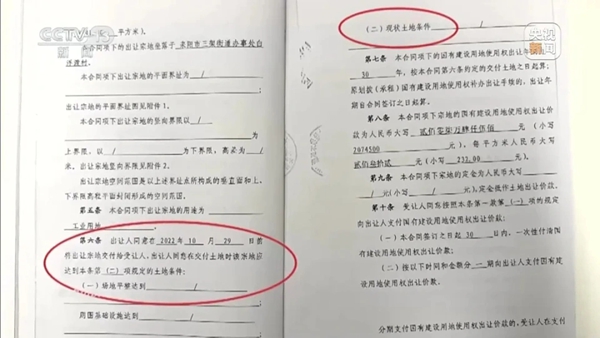 CCTV 13
新闻
央视新闻
/ 平方米)。
本合同项下的出让宗地坐落于
本合同项下出让宗地的平面界址为 /
/
出让宗地的平面界址图见附件1。
本合同项下出让宗地的竖向界限以 /
为
上界限,以 / 为下界限,高差为 /
米。出让宗地竖向界限见附件2。
出让宗地空间范围是以上述界址点所构成的垂直面和上、
下界限高程平面封闭形成的空间范围。
第五条 本合同项下出让宗地的用途为
工业用地
第六条 出让人同意在 2022 年 10 月 29 日前
将出让宗地交付给受让人,出让人同意在交付土地时该宗地应
达到本条第 (二) 项规定的土地条件:
(一) 场地平整达到 /
周围基础设施达到 /
(二) 现状土地条件 /
第七条 本合同项下的国有建设用地使用权出让年期
30 年,按本合同第六条约定的交付土地之日起算;
原划拨(承租)国有建设用地使用权补办出让手续的,出让年
期自合同签订之日起算。
第八条 本合同项下宗地的国有建设用地使用权出让价
款为人民币大写 元 (小写
2074500 元),每平方米人民币大写
元 (小写 232.00 元)。
第九条 本合同项下宗地的定金为人民币大写
/ 元(小写 / 元),定金抵作土地出让价款。
第十条 受让人同意按照本条第一款第 (一) 项的规定
向出让人支付国有建设用地使用权出让价款:
(一) 本合同签订之日起 30 日内,一次性付清国
有建设用地使用权出让价款;
(二) 按以下时间和金额分 期向出让人支付国有建设
用地使用权出让价款。
分期支付国有建设用地使用权出让价款的,受让人在支付